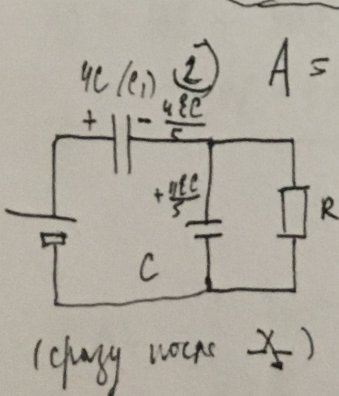 4C (C₁) 2) A =
+ - 4εC/5
+ 4εC/5
R
C
(сразу после